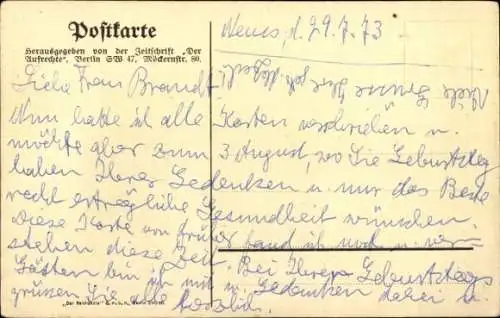 Postkarte
Herausgegeben von der Zeitschrift „Der
Aufrechte“, Berlin SW 47, Möckernstr. 80.
Neuss, d. 29.7.73
Liebe Frau Brandt
Nun hatte ich alle
Karten verschrieben u.
möchte aber zum
3 August, wo Sie Geburtstag
haben Ihrer Gedenken u. nur das Beste
recht erträgliche Gesundheit wünschen.
Diese Karte von früher fand ich noch u. ver-
stehen diese Zeit
Bei Ihrem Geburtstags
bin ich mit Gedenken dabei u.
grüßen Sie alle herzlich.
Ihre